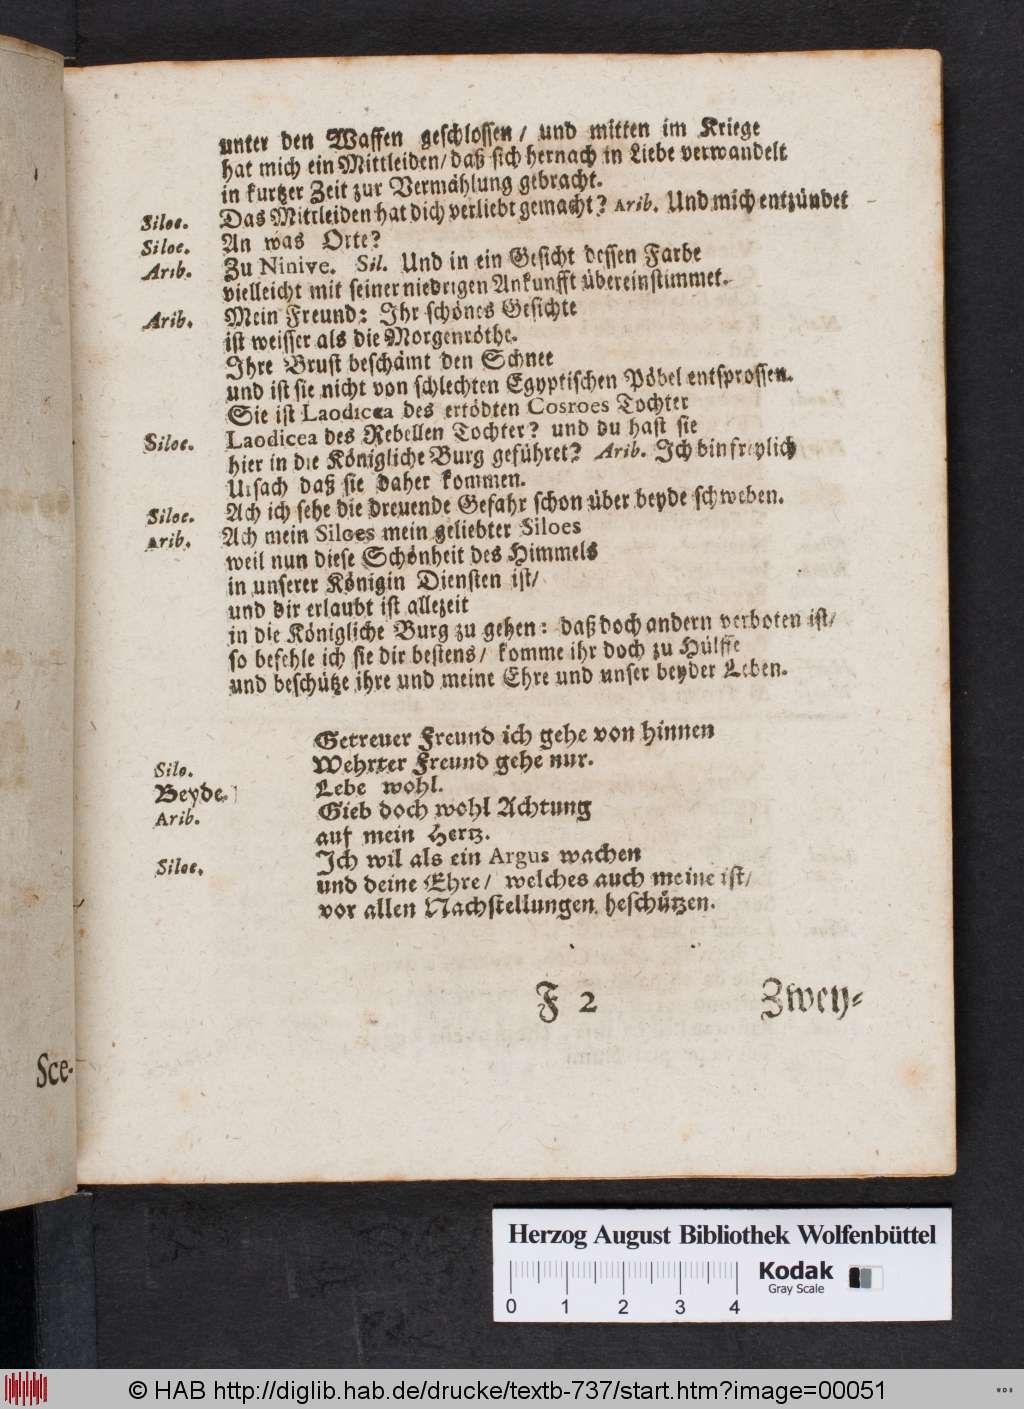 unter den Waffen geschlossen / und mitten im Kriege
hat mich ein Mittleiden / daß sich hernach in Liebe verwandelt
in kurtzer Zeit zur Vermählung gebracht.
Siloe. Das Mittleiden hat dich verliebt gemacht? Arib. Und mich entzündet
Siloe. An was Orte?
Arib. Zu Ninive. Sil. Und in ein Gesicht dessen Farbe
vielleicht mit seiner niedrigen Ankunfft übereinstimmet.
Arib. Mein Freund: Ihr schönes Gesichte
ist weisser als die Morgenröthe.
Ihre Brust beschämt den Schnee
und ist sie nicht von schlechten Egyptischen Pöbel entsprossen.
Sie ist Laodicea des ertödten Cosroes Tochter
Siloe. Laodicea des Rebellen Tochter? und du hast sie
hier in die Königliche Burg geführet? Arib. Ich bin freylich
Ursach daß sie daher kommen.
Siloe. Ach ich sehe die dreuende Gefahr schon über beyde schweben.
Arib. Ach mein Siloes mein geliebter Siloes
weil nun diese Schönheit des Himmels
in unserer Königin Diensten ist/
und dir erlaubt ist allezeit
in die Königliche Burg zu gehen: daß doch andern verboten ist/
so befehle ich sie dir bestens / komme ihr doch zu Hülffe
und beschütze ihre und meine Ehre und unser beyder Leben.
Getreuer Freund ich gehe von hinnen
Silo. Wehrter Freund gehe nur.
Beyde. Lebe wohl.
Arib. Gieb doch wohl Achtung
auf mein Hertz.
Siloe. Ich wil als ein Argus wachen
und deine Ehre / welches auch meine ist/
vor allen Nachstellungen beschützen.
F 2 Zwey-
Sce-
Herzog August Bibliothek Wolfenbüttel
Kodak
Gray Scale
0 1 2 3 4
© HAB http://diglib.hab.de/drucke/textb-737/start.htm?image=00051